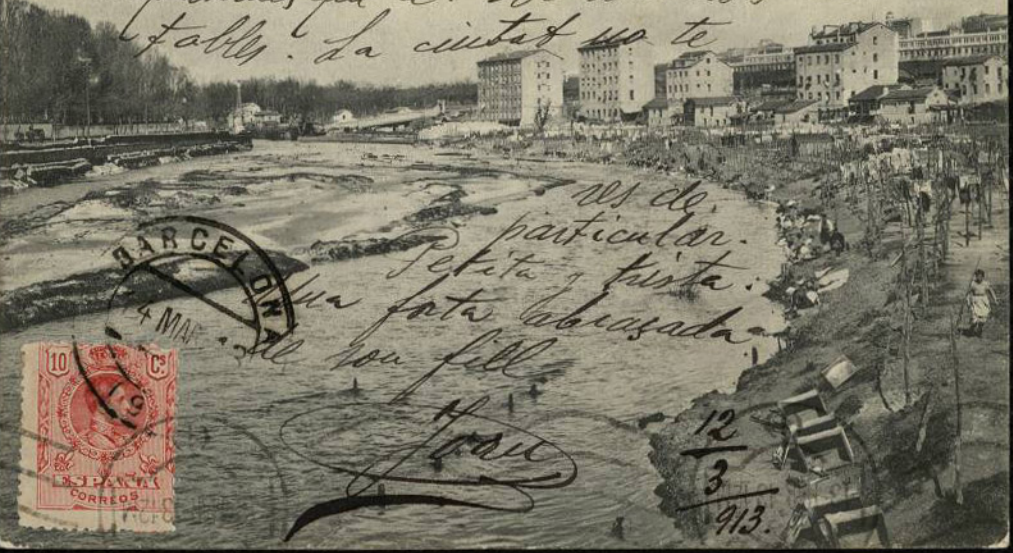 tables. La ciutat no te
res de
particular.
Petita y trista.
Una forta abrasada
de son fill
Joan
12
3
913.
BARCELONA
4 MAR
10 Cs
ESPAÑA
CORREOS